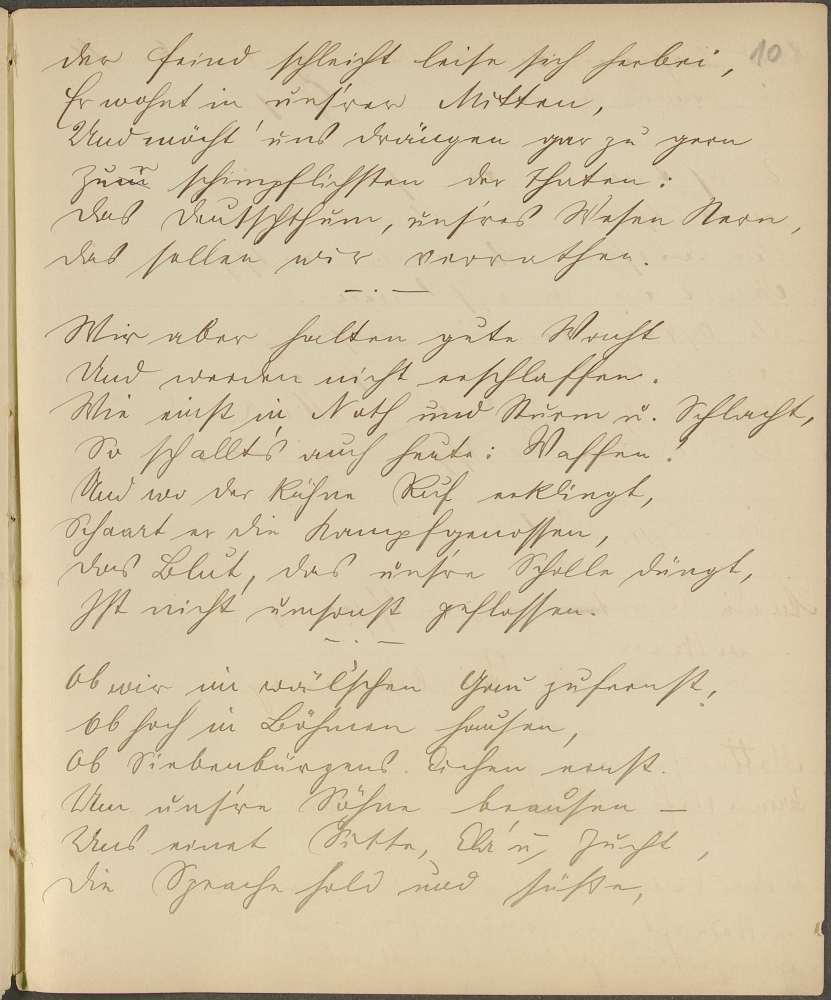 10
der Feind schleicht leise sich herbei,
Er wohnt in uns'rer Mitten,
Und möcht' uns drängen gar zu gern
Zur schimpflichsten der Thaten:
Das Deutschthum, uns'res Wesen Kern,
Das sollen wir verrathen.
Wir aber halten gute Wacht
Und werden nicht erschlaffen.
Wie einst in Noth und Sturm u. Schlacht,
So schallt's auch heute: Waffen!
Und wo der kühne Ruf erklingt,
Schaart er die Kampfgenossen,
Das Blut, das uns're Scholle düngt,
Ist nicht umsonst geflossen.
Ob wir im wäl'schen Gau zufernst,
Ob hoch in Böhmen hausen,
Ob Siebenbürgens Eichen ernst
Um uns're Söhne brausen –
Uns einet Sitte, Ehr' u, Zucht,
Die Sprache hold und süße,